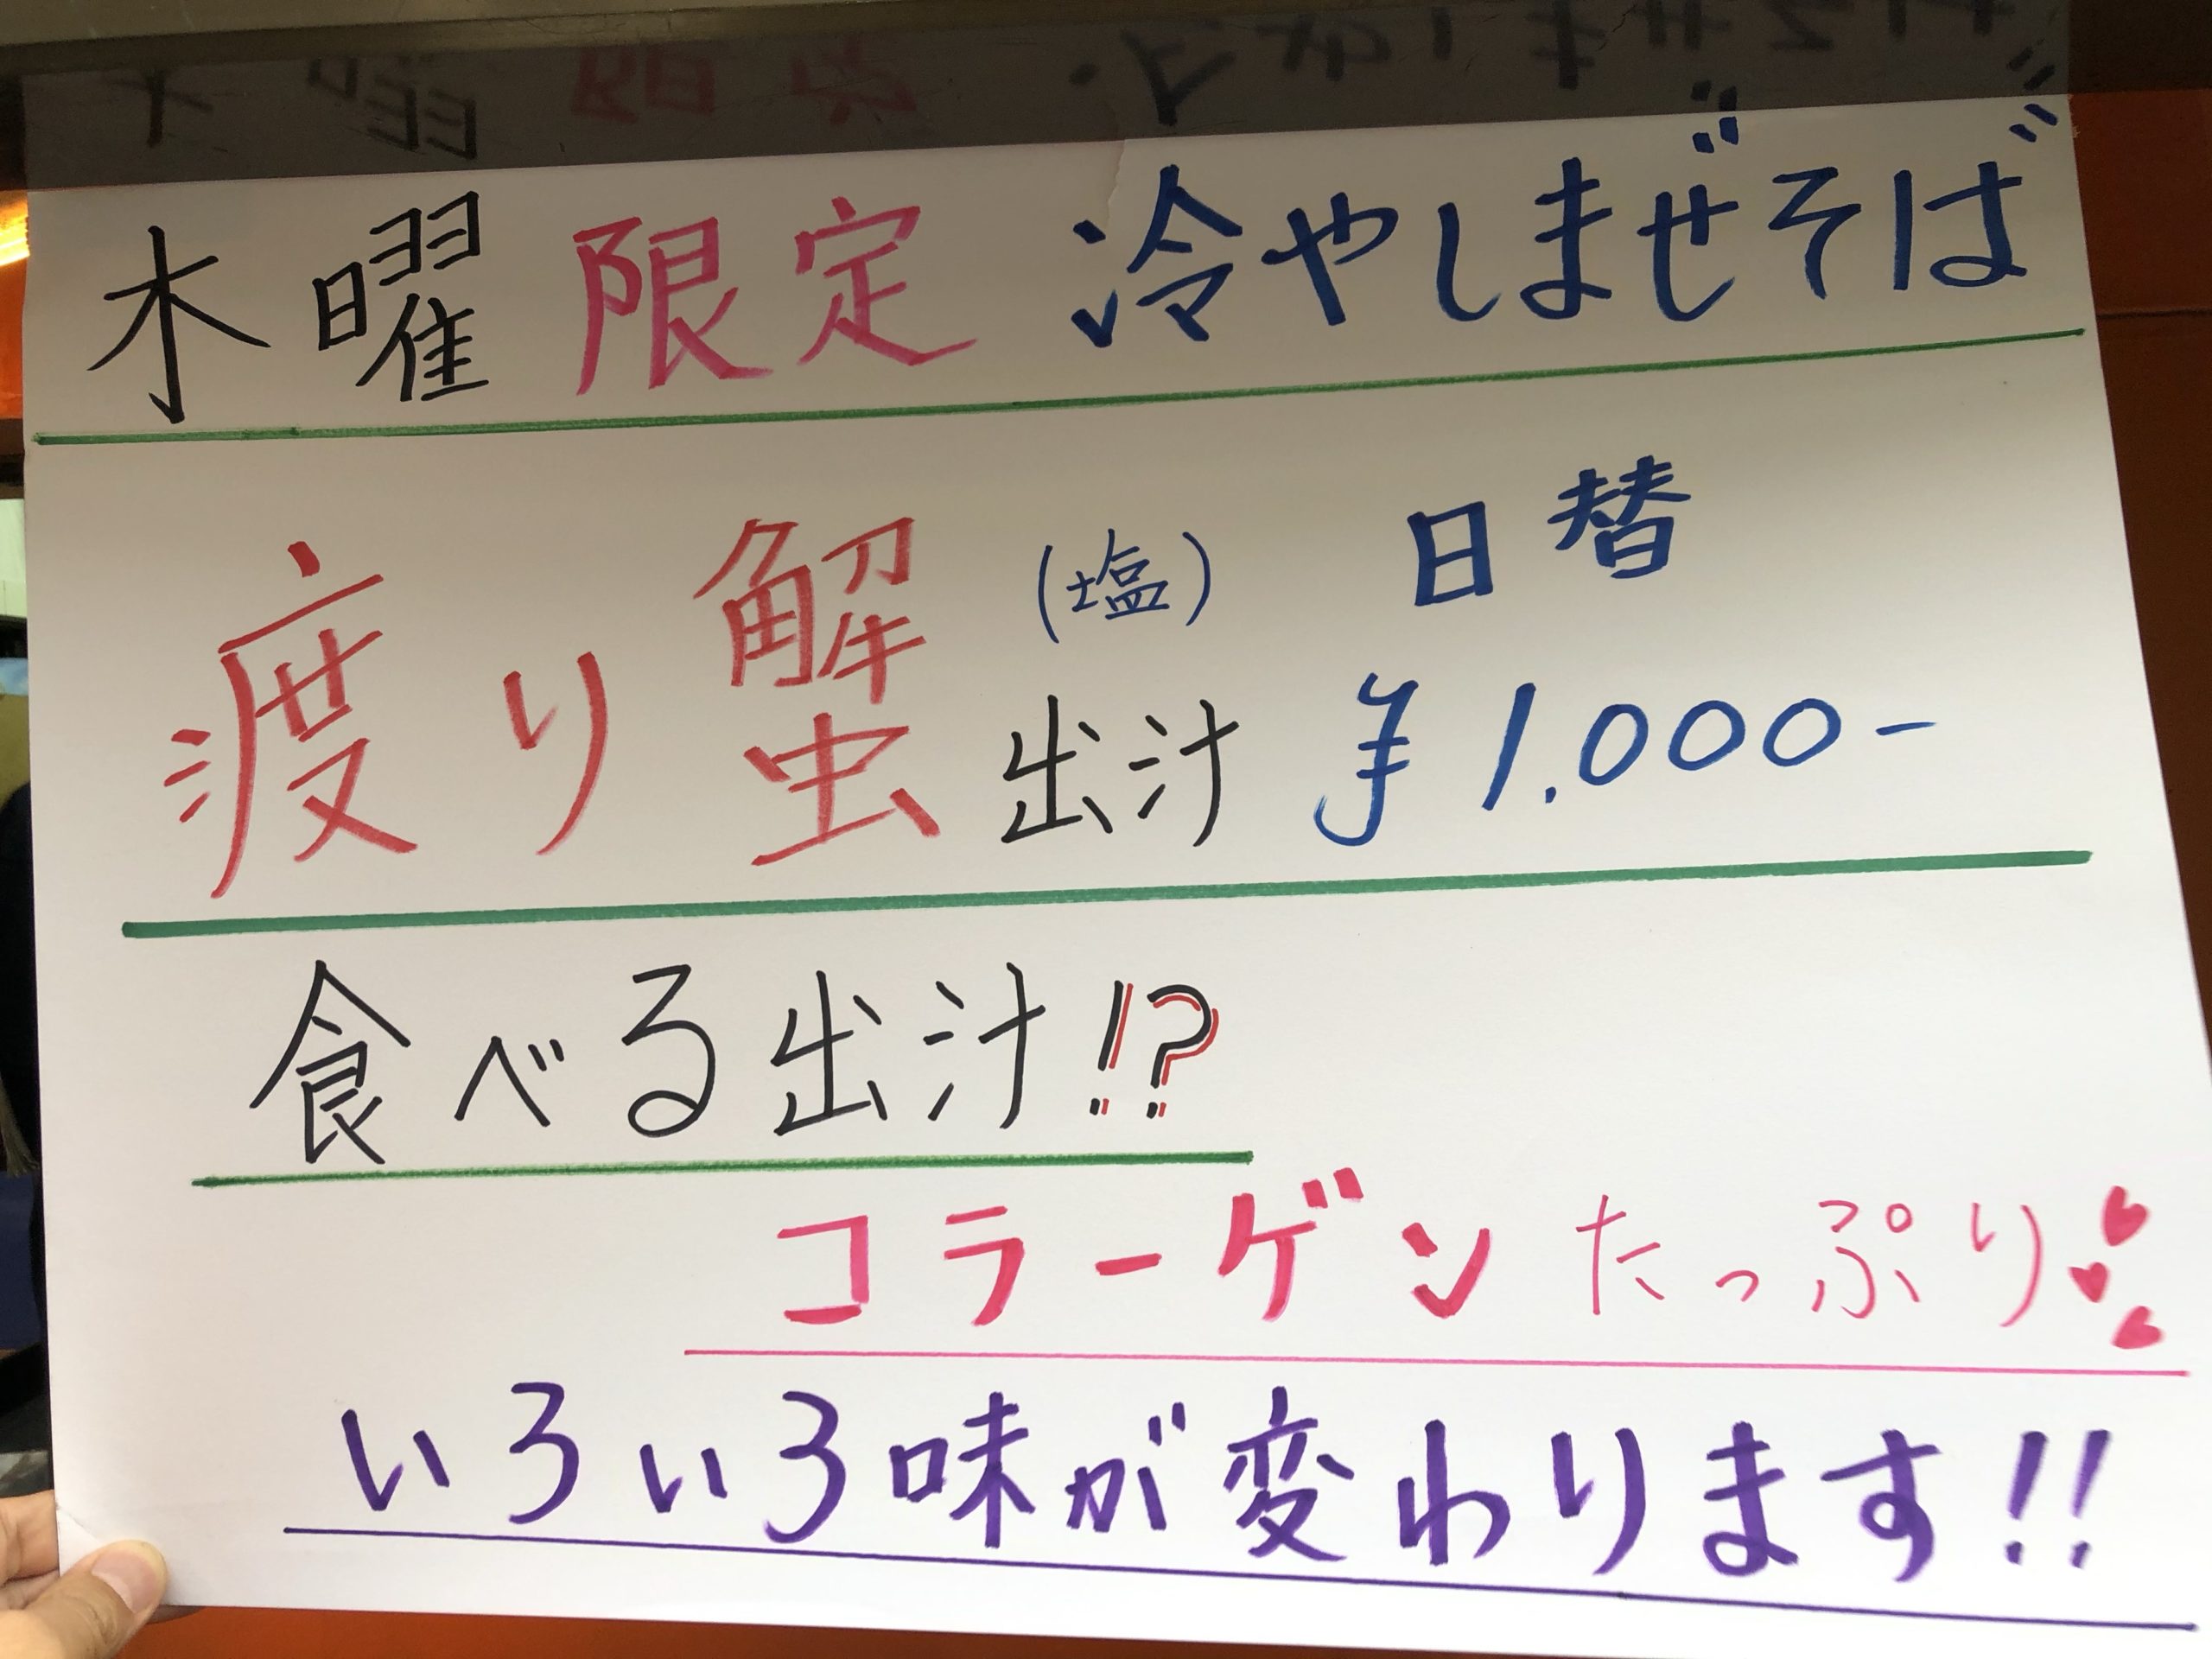 木曜限定 冷やしまぜそば
渡り蟹(塩)出汁 日替 ¥1.000-
食べる出汁!?
コラーゲンたっぷり♥♥♥
いろいろ味が変わります!!